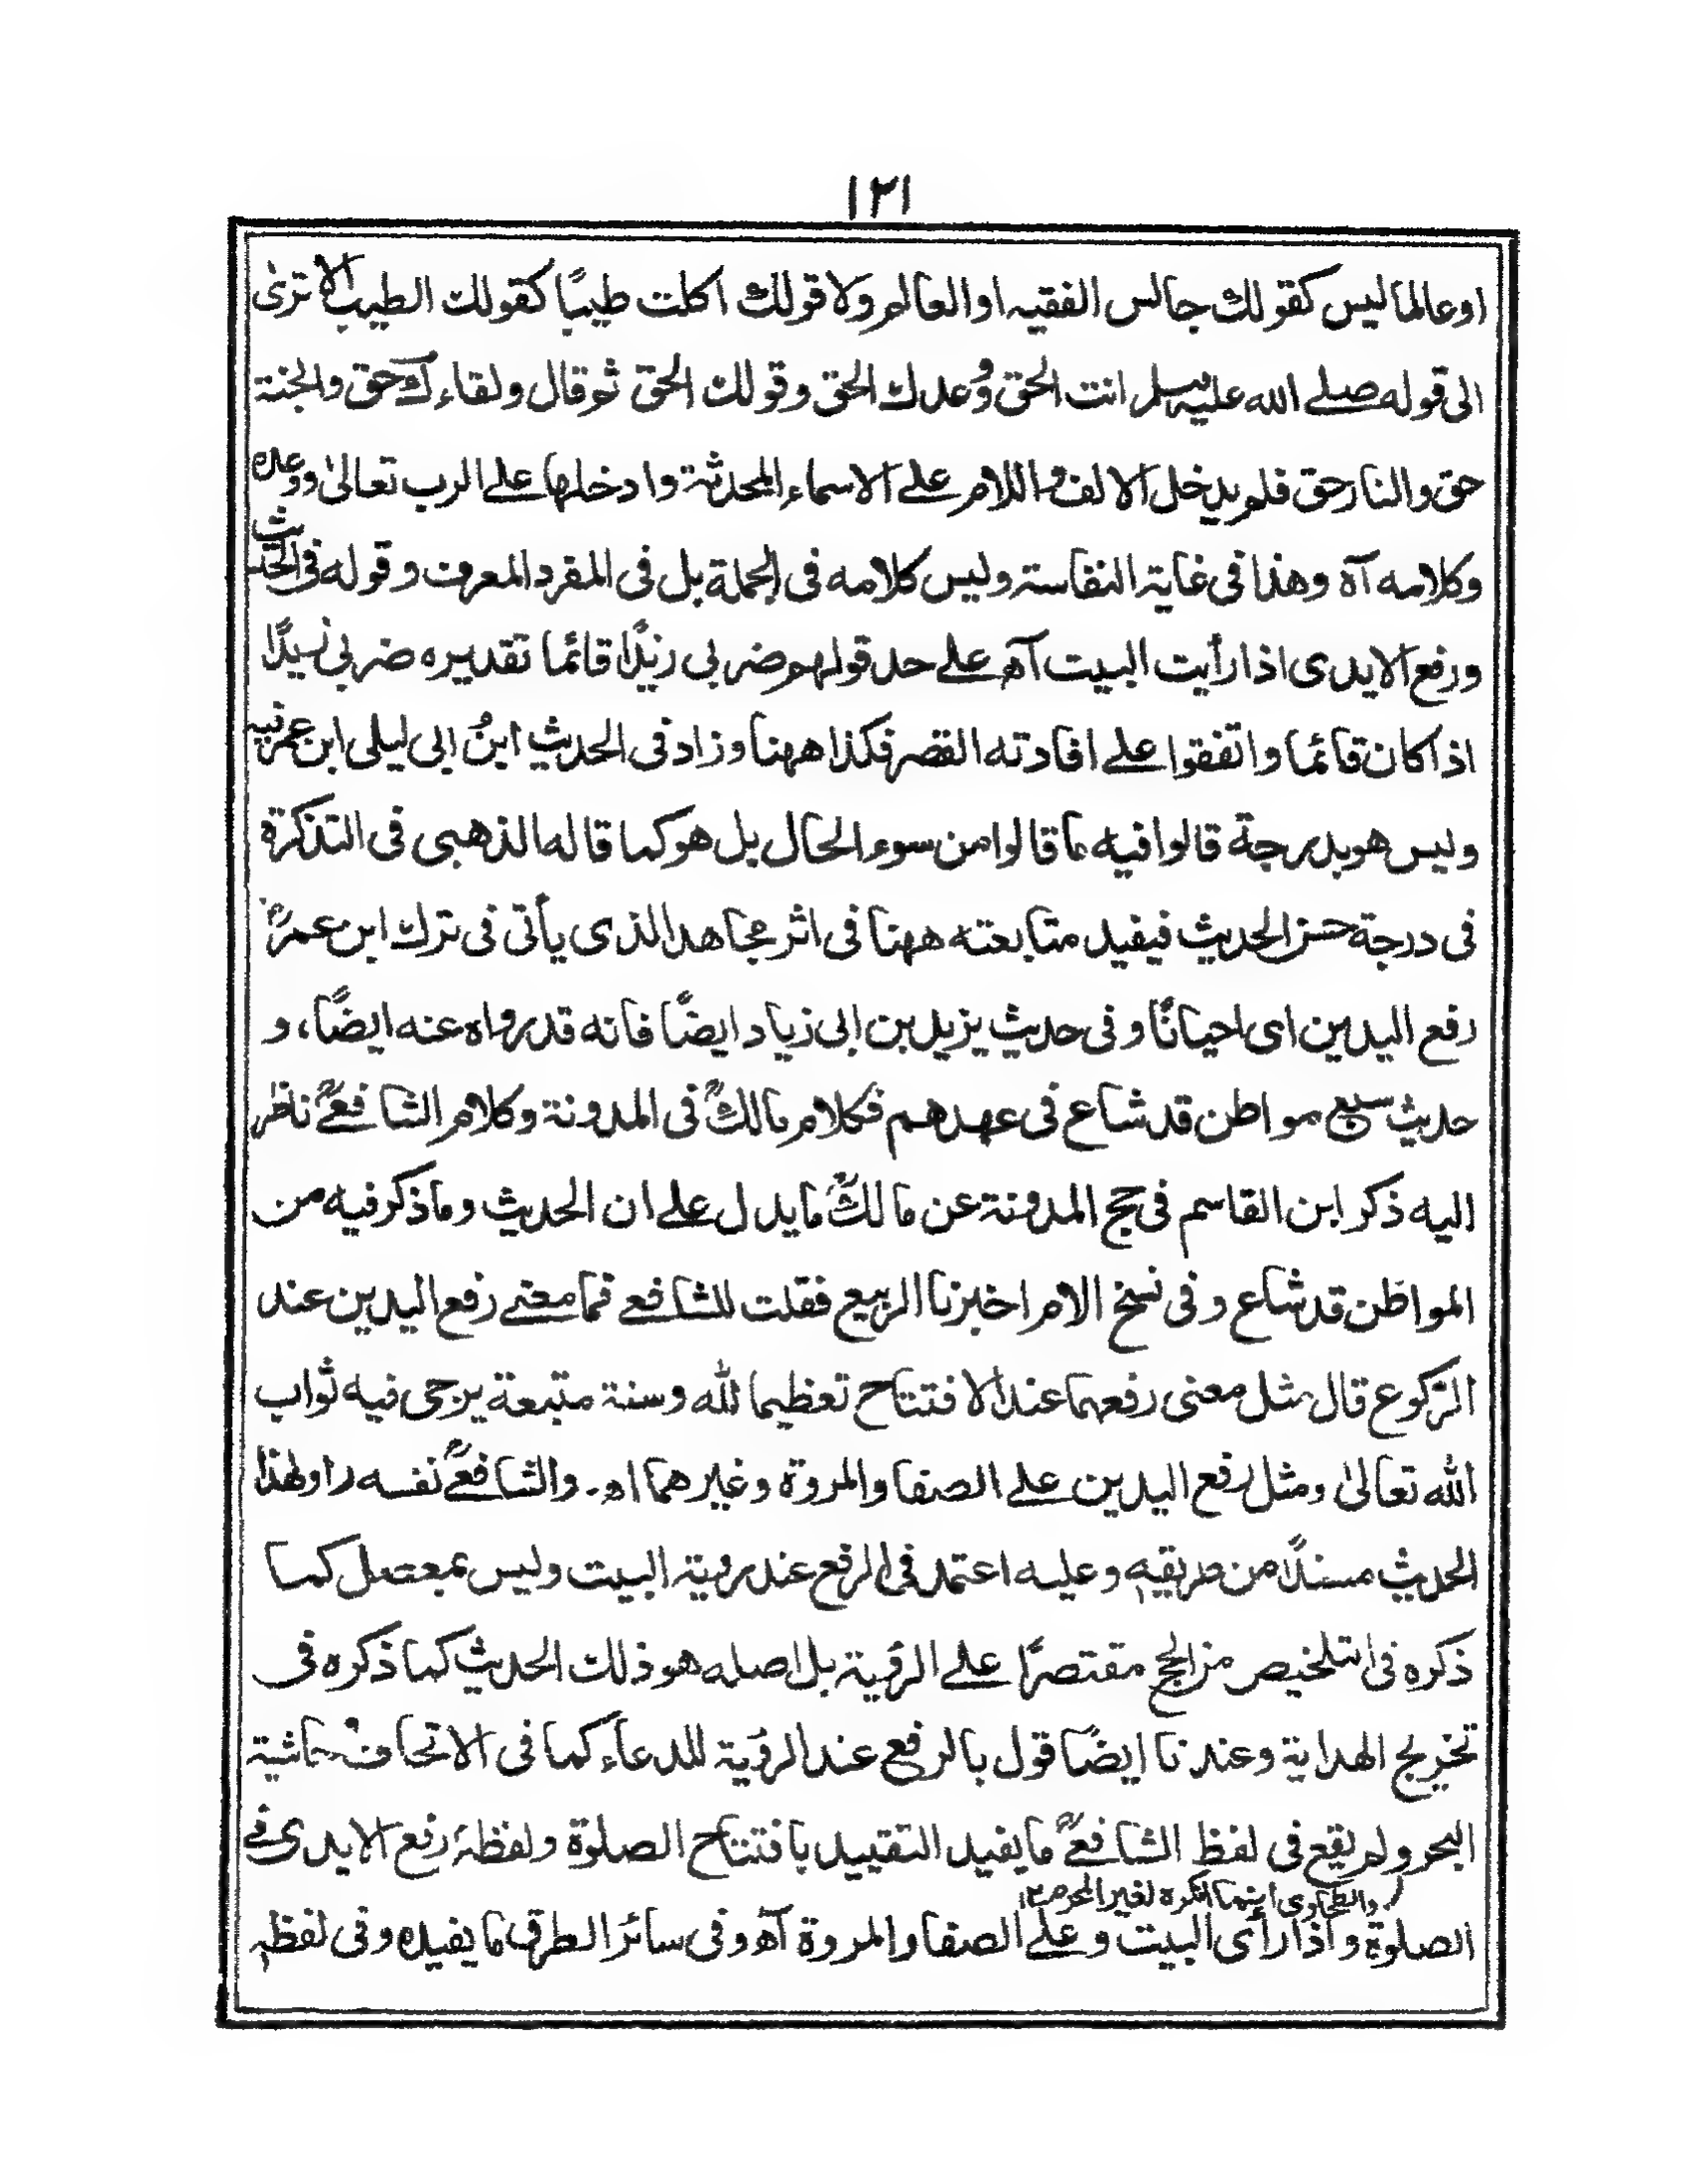 ١٢١
او عالما ليس كقولك جالس الفقيه او العالم ولا قولك اكلت طيبًا كقولك الطيب الا ترىٰ
الى قوله صلے الله عليه وسلم انت الحق ووعدك الحق وقولك الحق ثم قال ولقاءك حق والجنة
حق والنار حق فلم يدخل الالف واللام علے الاسماء المحدثة وادخلها علے الرب تعالىٰ ووعده
وكلامه آه وهذا فى غاية النفاسة وليس كلامه فى الجملة بل فى المفرد المعرف وقوله فى الحديث
ورفع الايدى اذا رأيت البيت آه علے حد قولهم ضربى زيدًا قائما تقديره ضربى زيدًا
اذا كان قائما واتفقوا علے افادته القصر فكذا ههنا وزاد فى الحديث ابنُ ابى ليلى ابن عمر فيه
وليس هو بدرجة قالوا فيه ما قالوا من سوء الحال بل هو كما قاله الذهبى فى التذكرة
فى درجة حسن الحديث فيفيد متابعته ههنا فى اثر مجاهد الذى يأتى فى ترك ابن عمرؓ
رفع اليدين اى احيانًا وفى حديث يزيد بن ابى زياد ايضًا فانه قد رواه عنه ايضًا، و
حديث سبع مواطن قد شاع فى عهدهم فكلام مالكؒ فى المدونة وكلام الشافعےؒ ناظر
اليه ذكر ابن القاسم فى حج المدونة عن مالكؒ ما يدل علے ان الحديث وما ذكر فيه من
المواطن قد شاع وفى نسخ الام اخبرنا الربيع فقلت للشافعے فما معنے رفع اليدين عند
الركوع قال مثل معنى رفعهما عند الافتتاح تعظيما لله وسنة متبعة يرجى فيه ثواب
الله تعالىٰ ومثل رفع اليدين علے الصفا والمروة وغيرهما اه۔ والشافعےؒ نفسه راو لهذا
الحديث مسندًا من طريقيه وعليه اعتمد فى الرفع عند روية البيت وليس بمعضل كما
ذكره فى التلخيص من الحج مقتصرًا علے الرؤية بل اصله هو ذلك الحديث كما ذكره فى
تخريج الهداية وعندنا ايضًا قول بالرفع عند الرؤية للدعاء كما فى الاتحاف حاشية
البحر ولم يقع فى لفظ الشافعےؒ ما يفيد التقييد بافتتاح الصلوة ولفظهٗ رفع الايدى فے
والطحاوى انما انكره لغير المحرم ١٢
الصلوة واذا رأى البيت وعلے الصفا والمروة آه وفى سائر الطرق ما يفيده وفى لفظه